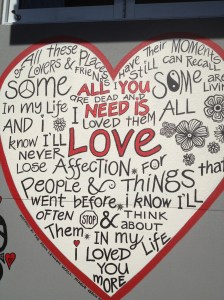 All these Places Have Their Moments
of LOVERS & FRIENDS I Still can Recall
SOME ARE DEAD AND SOME are LIVING
ALL YOU
NEED IS
LOVE
In my Life I LOVED THEM ALL
AND i know I'LL NEVER
LOSE AFFection FOR
PEOPLE & THINGS that
went before i know I'LL
OFTEN STOP & THINK about
Them IN my Life
i LOVED
YOU
MORE